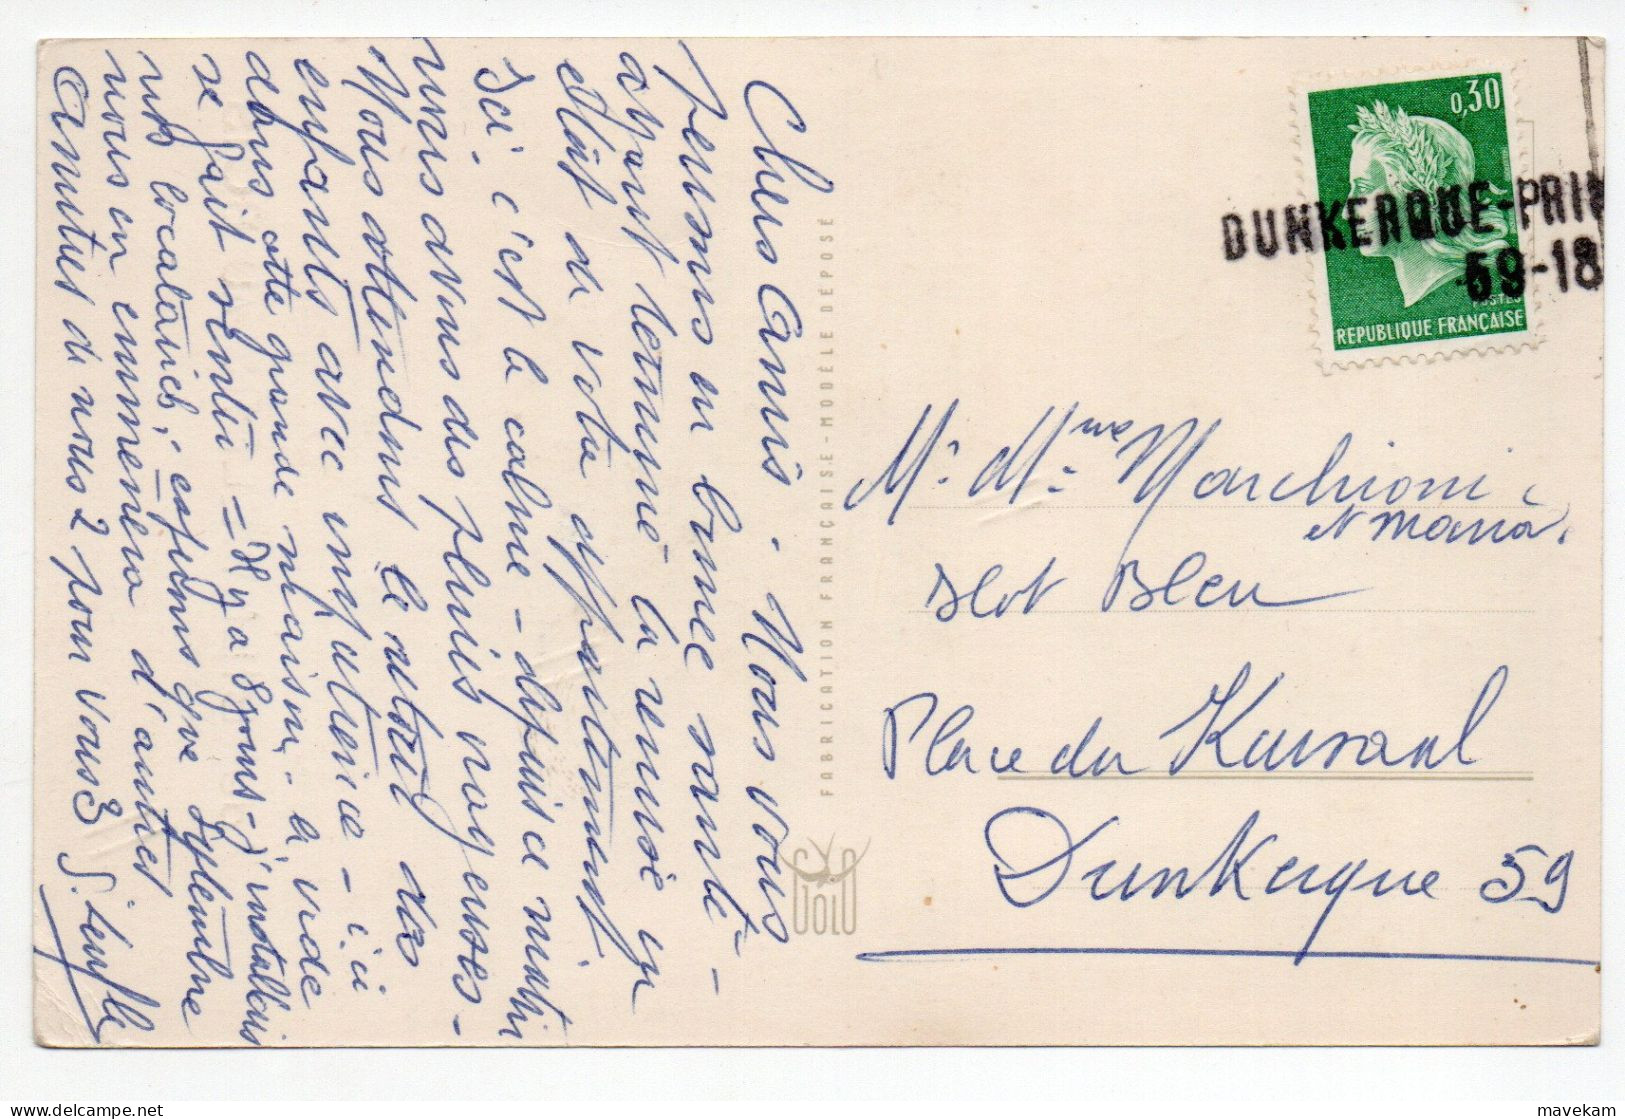 Chers Amis. Nous vous
pensons en bonne santé -
ayant terminé la remise en
état de votre appartement
Ici, c'est le calme - depuis ce matin
nous avons des pluies orageuses -
Nous attendons le retour des
enfants avec impatience - ici
dans cette grande maison, le vide
se fait sentir = Il y a 8 jours - j'installais
mes locataires, espérons que Septembre
nous en emmènera d'autres
Amitiés de nous 2 pour vous 3
FABRICATION FRANÇAISE - MODÈLE DÉPOSÉ
GOLO
0,30
POSTES
REPUBLIQUE FRANÇAISE
DUNKERQUE-PRIN
59-18
Mr. Mme Marchioni
et Maria
Ilot Bleu
Place du Kursaal
Dunkerque 59
mavekam
delcampe.net